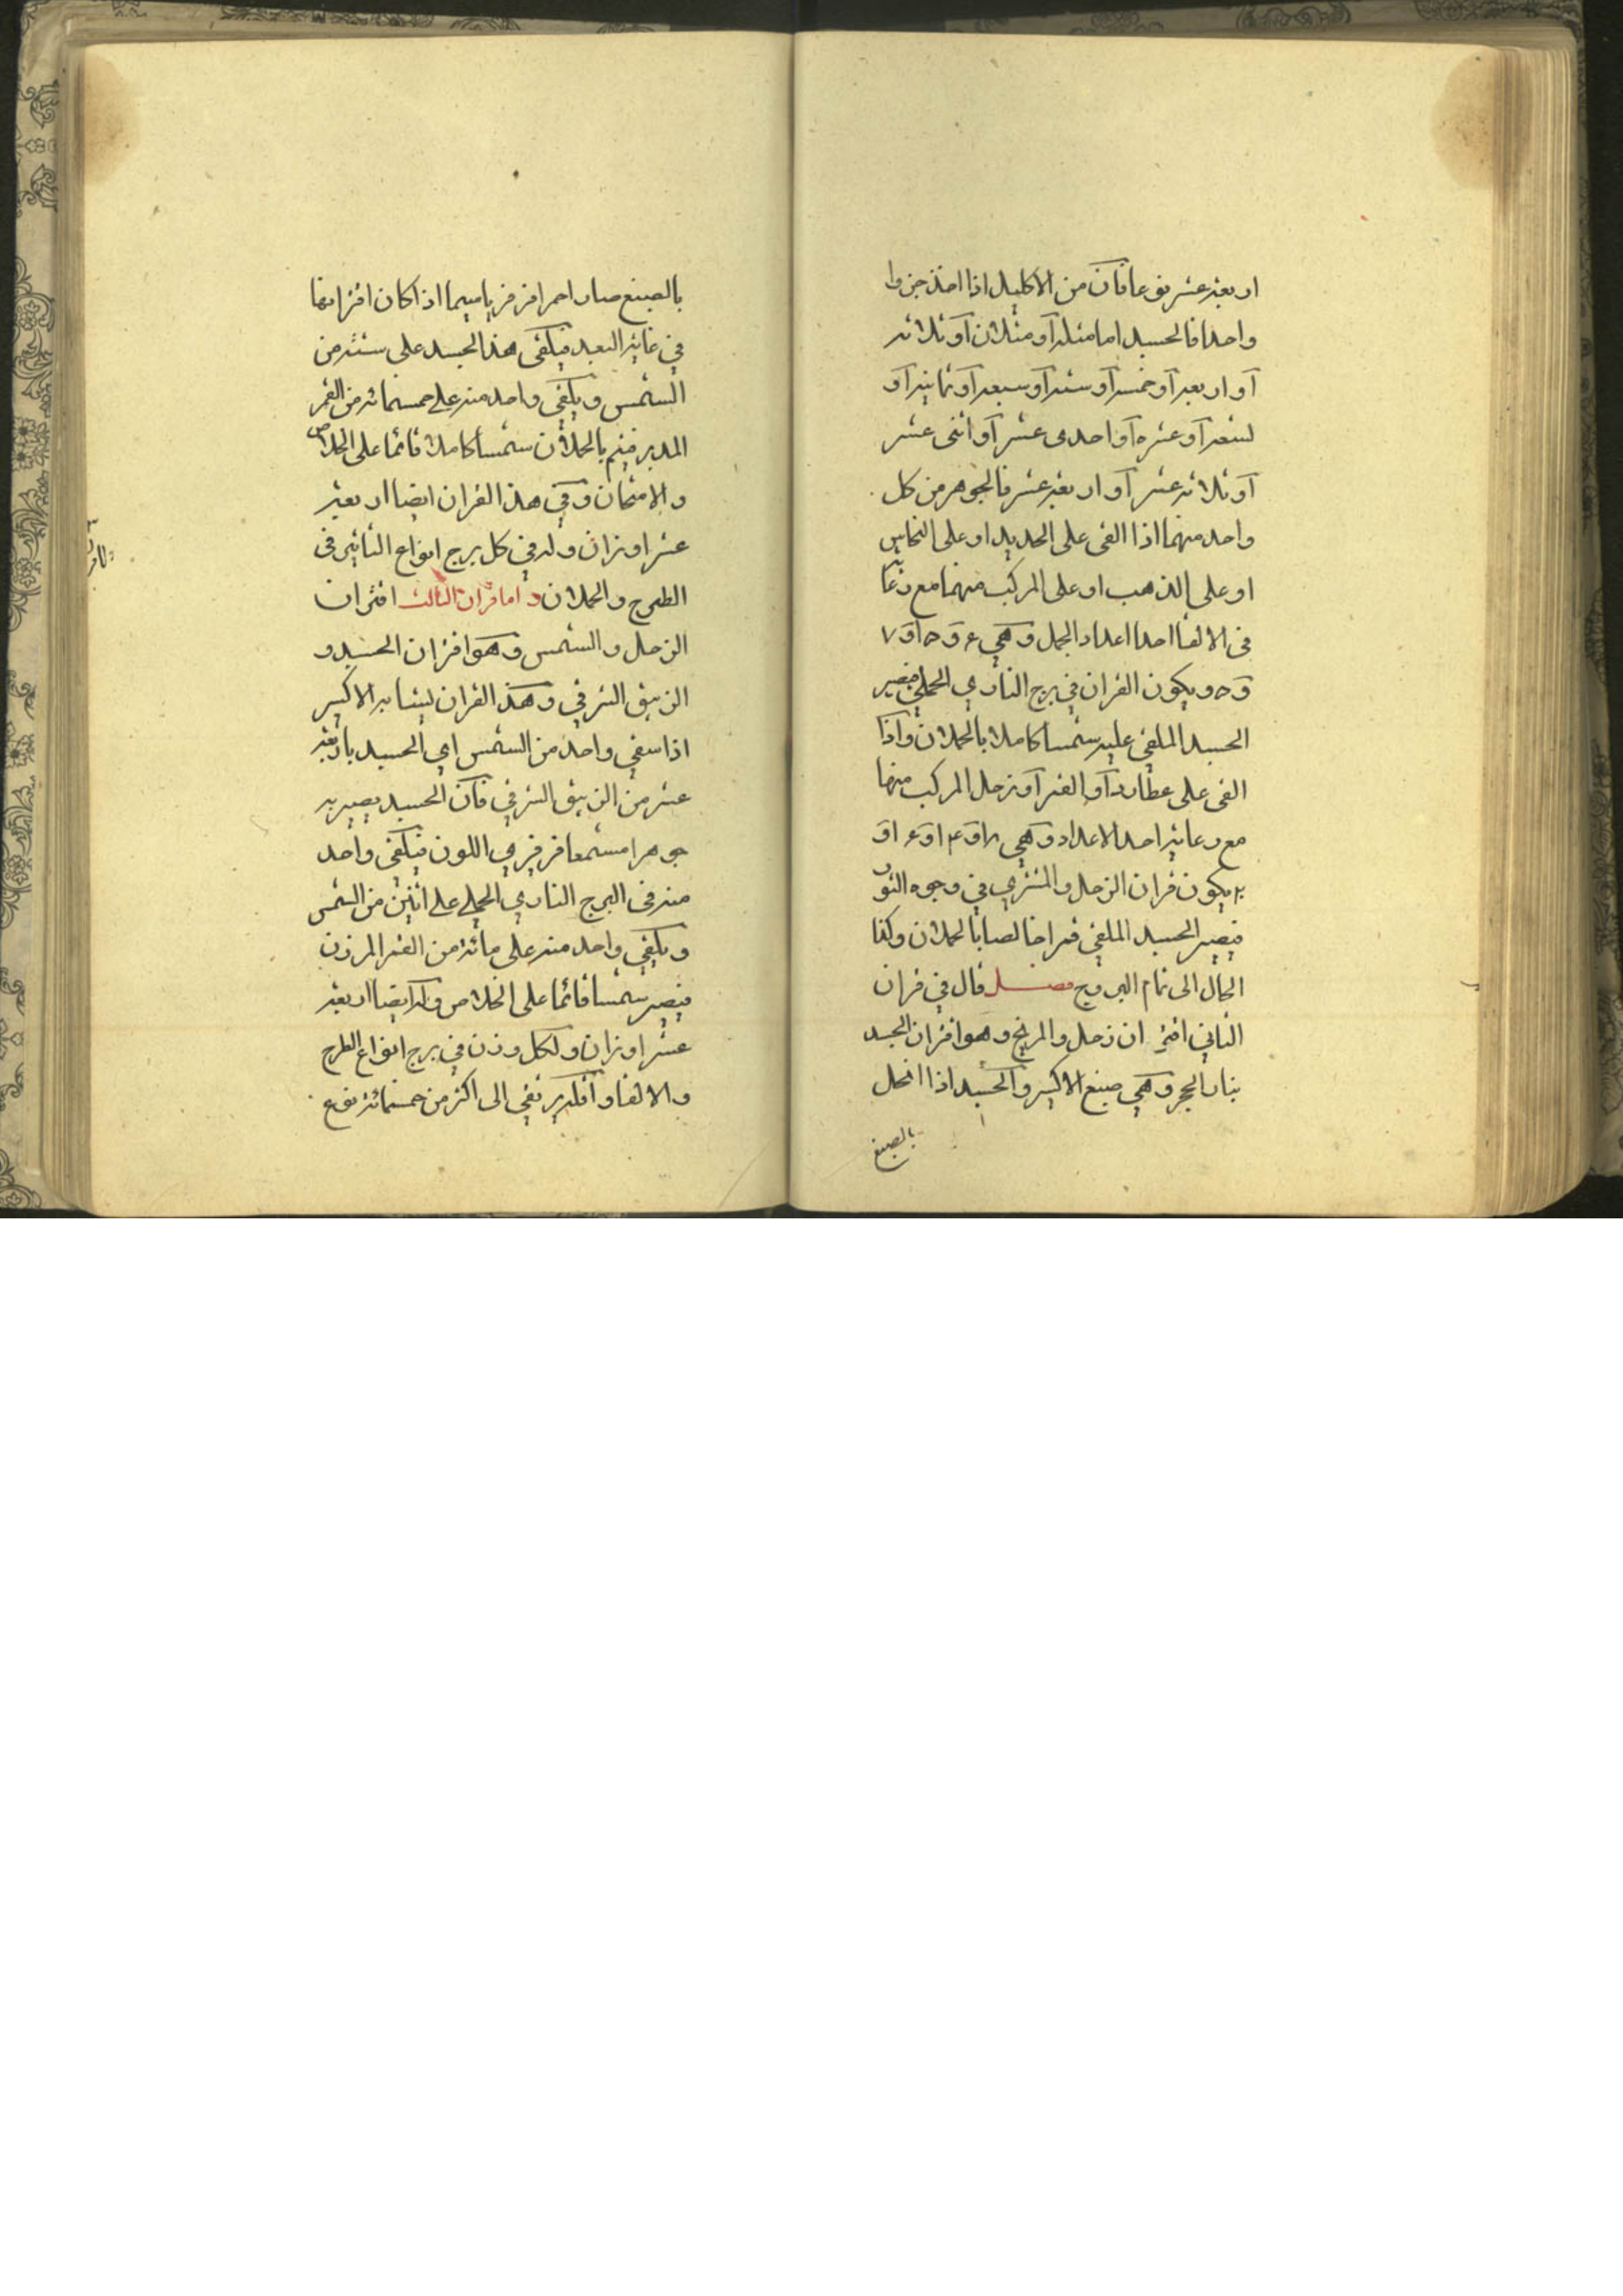 اربعة عشر نوعا فان من الاكليل اذا اخذ جزوا
واحدا فالجسد اما مثله او مثلان او ثلاثة
او اربعة او خمسة او ستة او سبعة او ثمانية او
تسعة او عشرة او احدى عشر او اثنى عشر
او ثلاثة عشر او اربعة عشر فالجوهر من كل
واحد منهما اذا القى على الحديد او على النحاس
او على الذهب او على المركب منهما مع
فى الالقا احدا اعداد الجمل وهي ٤ و ٥ او ٧
و ٥ ويكون القران في برج الناري الحملي فيصير
الجسد الملقي عليه شمسا كاملا بالحملان واذا
القى على عطارد او القمر او زحل المركب منها
مع رعاية احد الاعداد وهي
يكون قران الزحل والمشتري في وجوه الثور
فيصير الجسد الملقي قمرا خالصا بالحملان وكذا
الحال الى تمام البروج فصل قال في قران
الثاني اقتران زحل والمريخ وهو اقتران الجسد
بنار الحجر وهي صبغ الاكسير والجسد اذا انحل
بالصبغ
بالصبغ صار احمرا فرفريا سيما اذا كان اقترانها
في غاية البعد فيلقى هذا الجسد على ستة من
الشمس ويلقي واحد منه على خمسمائة من القمر
المدبر فيتم بالحملان شمسا كاملا قائما على الخلاص
والامتحان وفي هذا القران ايضا اربعة
عشر اوزان وله في كل برج انواع التأثير فى
الطرح والحملان واما قران الثالث اقتران
الزحل والشمس وهو اقتران الجسد و
الزيبق الشرقي وهذا القران ليشابه الاكسير
اذا سقي واحد من الشمس اي الجسد باربعة
عشر من الزيبق الشرقي فان الجسد يصير به
جوهرا مشمعا فرفيري اللون فيلقي واحد
منه فى البرج الناري الحملي على اثنين من الشمس
ويلقي واحد منه على مائة من القمر المرزن
فيصير شمسا قائما على الخلاص وله ايضا اربعة
عشر اوزان ولكل وزن في برج انواع الطرح
والالقا واقله يرتقي الى اكثر من خمسمائة نوع